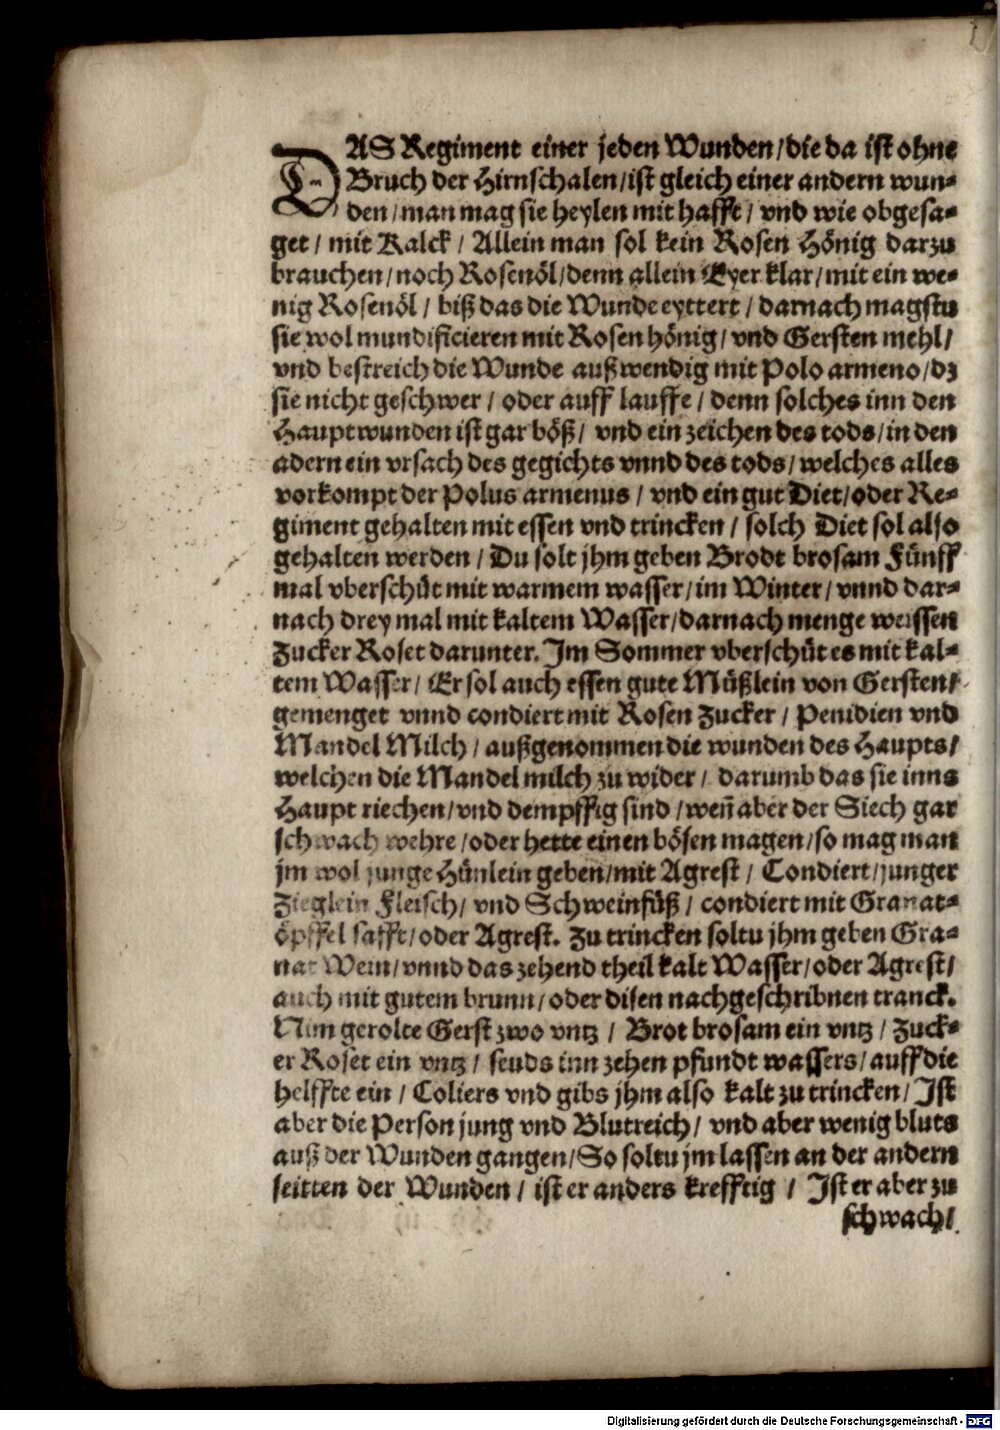 DAS Regiment einer jeden Wunden/die da ist ohne
Bruch der Hirnschalen/ist gleich einer andern wun-
den/man mag sie heylen mit hafft/ vnd wie obgesa-
get / mit Kalck / Allein man sol kein Rosen Hönig darzu
brauchen/noch Rosenöl/denn allein Eyer klar/mit ein we-
nig Rosenöl / biß das die Wunde eyttert / darnach magstu
sie wol mundificieren mit Rosen hönig/ vnd Gersten mehl/
vnd bestreich die Wunde außwendig mit Polo armeno/dz
sie nicht geschwer / oder auff lauffe / denn solches inn den
Hauptwunden ist gar böß/ vnd ein zeichen des tods/in den
adern ein vrsach des gegichts vnnd des tods/ welches alles
vorkompt der Polus armenus / vnd ein gut Diet/oder Re-
giment gehalten mit essen vnd trincken / solch Diet sol also
gehalten werden / Du solt jhm geben Brodt brosam Fünff
mal vberschüt mit warmem wasser/im Winter/ vnnd dar-
nach drey mal mit kaltem Wasser/darnach menge weissen
Zucker Roset darunter. Im Sommer vberschüt es mit kal-
tem Wasser/ Er sol auch essen gute Müßlein von Gersten/
gemenget vnnd condiert mit Rosen Zucker / Penidien vnd
Mandel Milch / außgenommen die wunden des Haupts/
welchen die Mandel milch zu wider / darumb das sie inns
Haupt riechen/vnd dempffig sind /weñ aber der Siech gar
schwach wehre /oder hette einen bösen magen/so mag man
jm wol junge Hünlein geben/mit Agrest / Condiert/junger
Zieglein Fleisch/ vnd Schweinfüß/ condiert mit Granat-
öpffel safft/oder Agrest. Zu trincken soltu jhm geben Gra-
nat Wein/vnnd das zehend theil kalt Wasser/oder Agrest/
auch mit gutem brunn/oder disen nachgeschribnen tranck.
Nim gerolte Gerst zwo vntz / Brot brosam ein vntz / Zuck-
er Roset ein vntz / seuds inn zehen pfundt wassers/auff die
helffte ein / Coliers vnd gibs jhm also kalt zu trincken/ Ist
aber die Person jung vnd Blutreich/ vnd aber wenig bluts
auß der Wunden gangen/So soltu jm lassen an der andern
seitten der Wunden / ist er anders krefftig / Ist er aber zu
schwach/
Digitalisierung gefördert durch die Deutsche Forschungsgemeinschaft - DFG